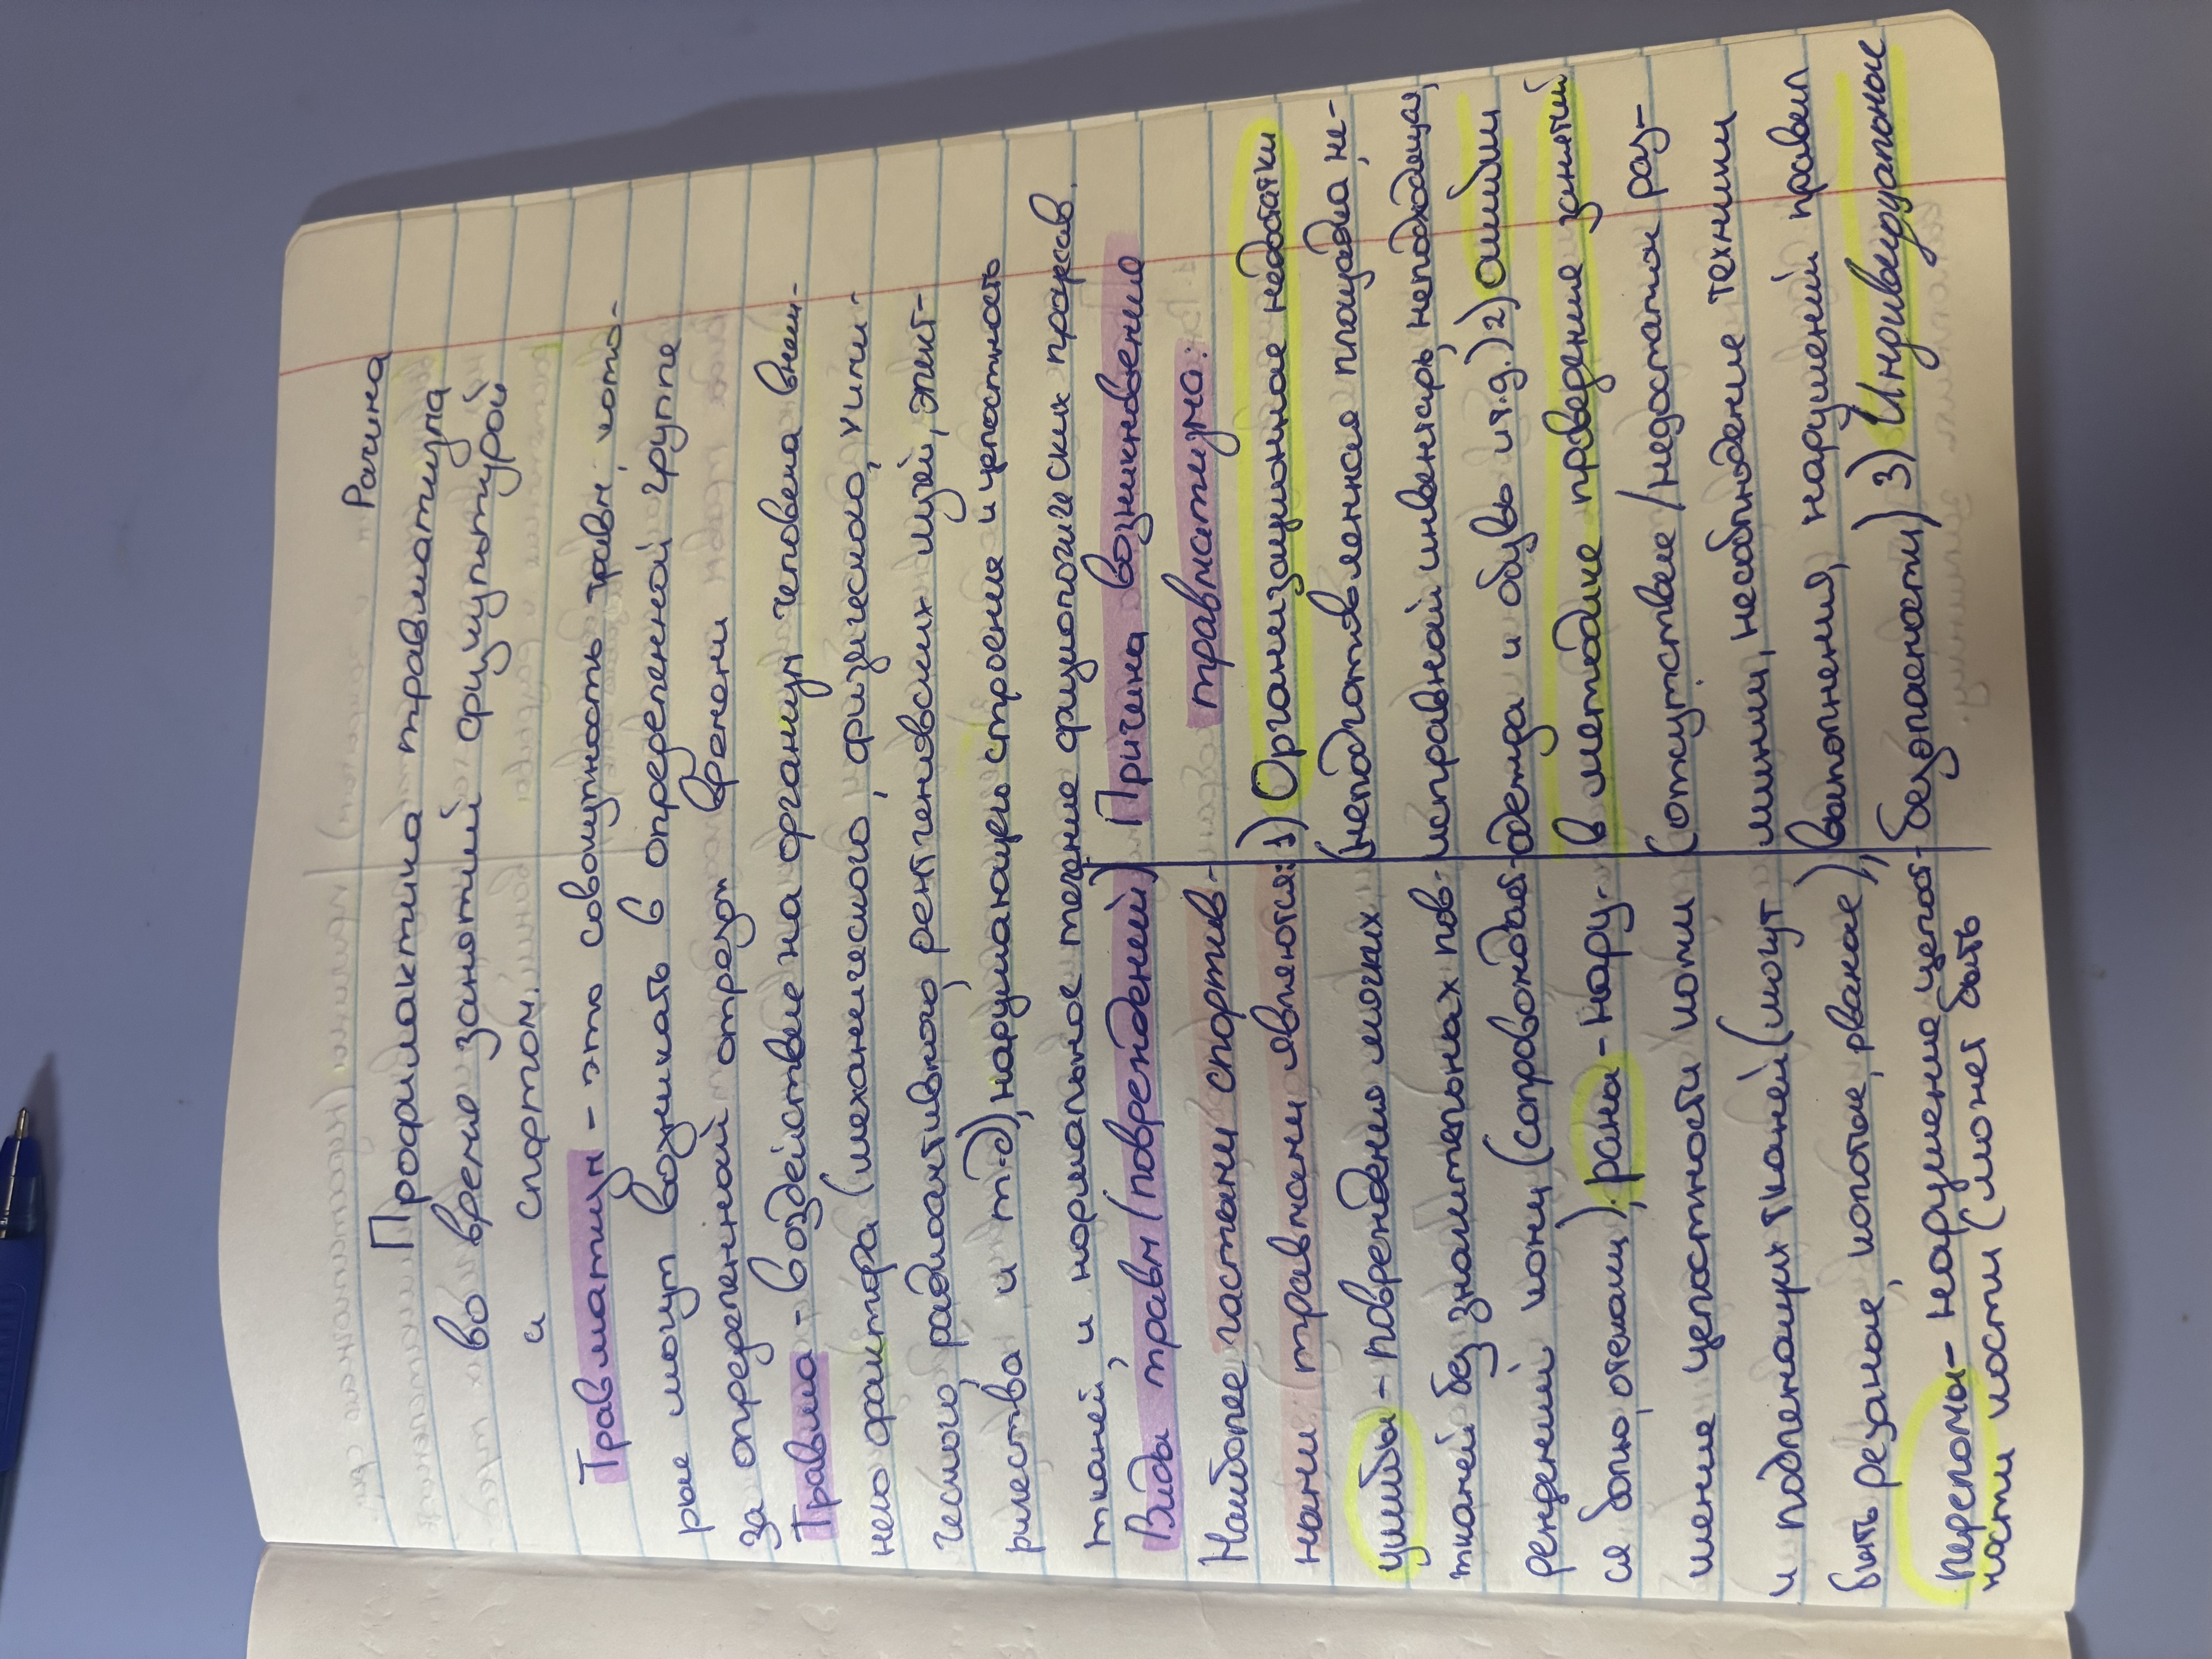 Рачина
Профилактика травматизма
во время занятий физкультурой
и спортом.
Травматизм - это совокупность травм, кото-
рые могут возникать в определенной группе
за определенный отрезок времени
Травма - воздействие на организм человека внеш-
него фактора (механического, физического, хими-
ческого, радиоактивного, рентгеновских лучей, элект-
ричества и т.д), нарушающего строение и целостность
тканей, и нормальное течение физиологических процессов.
Виды травм (повреждений)
Наиболее частыми спортив-
ными травмами являются:
ушибы - повреждению мягких
тканей без значительных пов-
реждений кожи (сопровождает-
ся болью, отеками), рана - нару-
шение целостности кожи
и подлежащих тканей (могут
быть резаные, колотые, рваные),
переломы - нарушение целост-
ности кости (может быть
Причина возникновение
травматизма:
1) Организационные недостатки
(неподготовленная площадка, не-
исправный инвентарь, неподходящая,
одежда и обувь и т.д.) 2) ошибки
в методике проведение занятий
(отсутствие/недостаток раз-
минки, несоблюдение техники
выполнения, нарушений правил
безопасности) 3) Индивидуальные